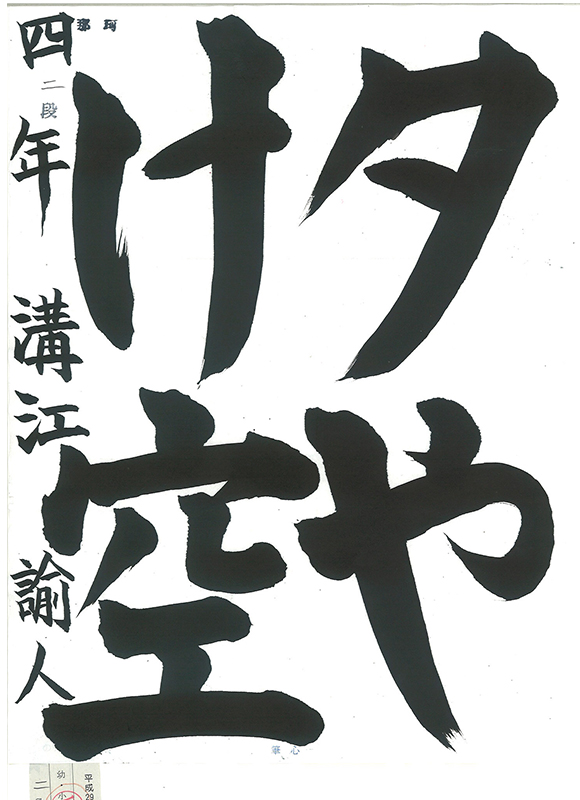 夕や
け空
四年 溝江 諭人
那珂
二段
心筆
平成29
幼・小
二